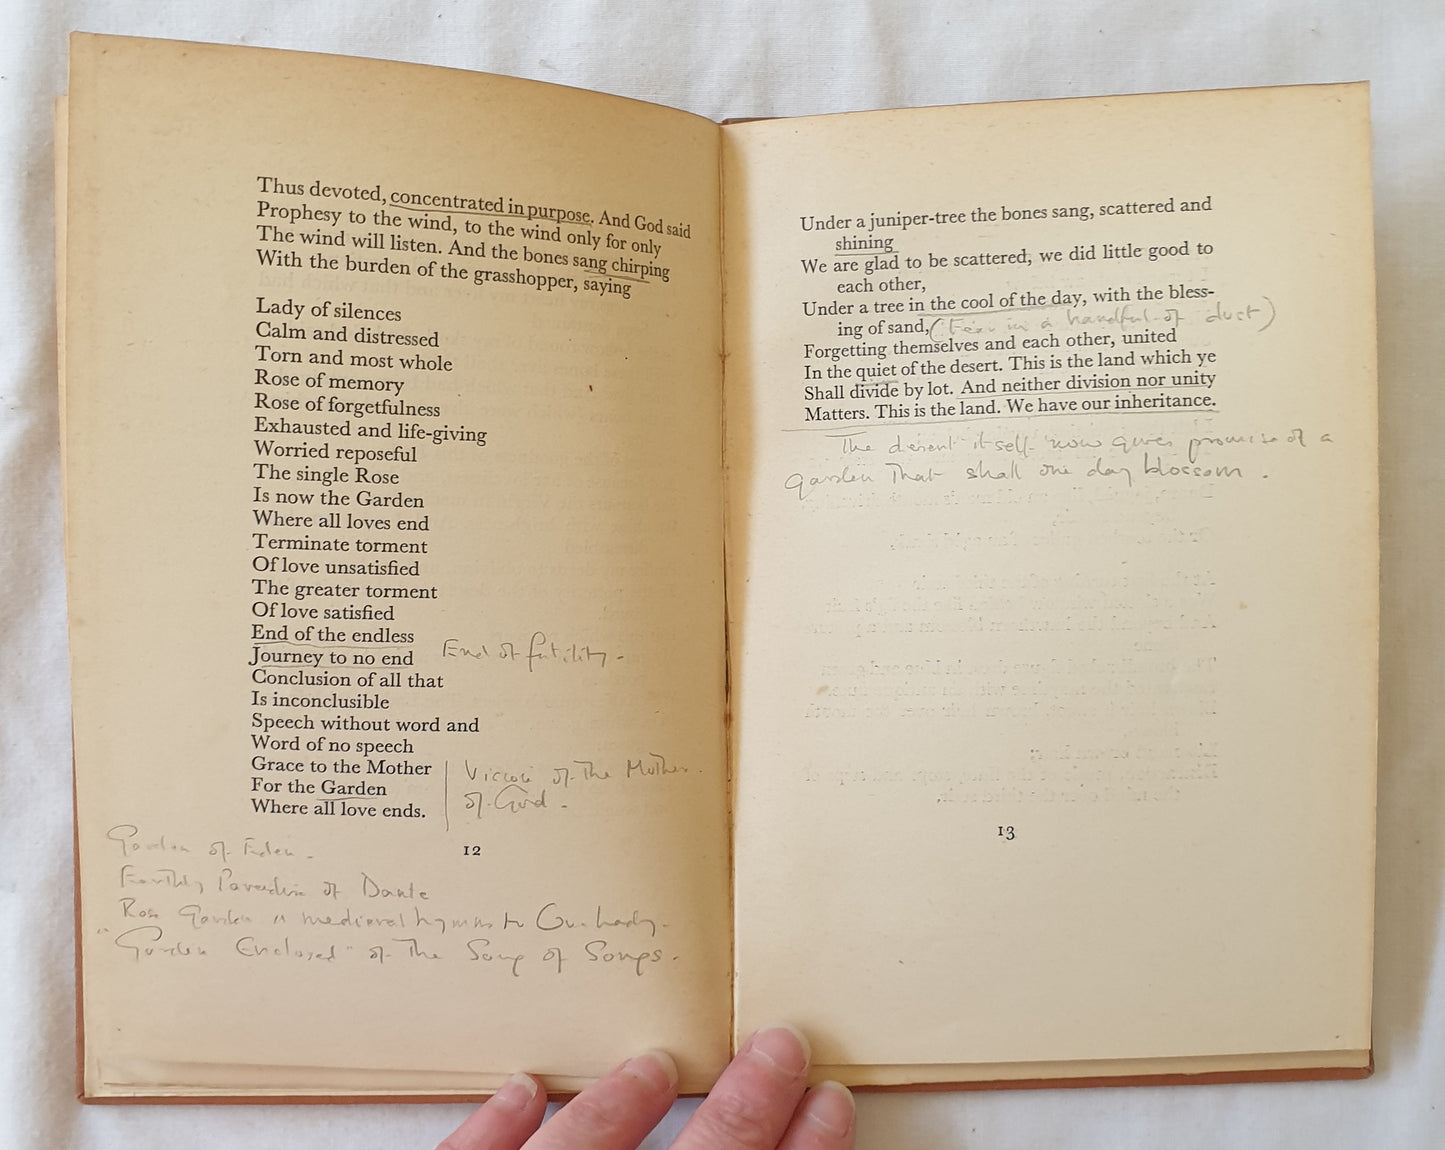 Thus devoted, concentrated in purpose. And God said
Prophesy to the wind, to the wind only for only
The wind will listen. And the bones sang chirping
With the burden of the grasshopper, saying
Lady of silences
Calm and distressed
Torn and most whole
Rose of memory
Rose of forgetfulness
Exhausted and life-giving
Worried reposeful
The single Rose
Is now the Garden
Where all loves end
Terminate torment
Of love unsatisfied
The greater torment
Of love satisfied
End of the endless
Journey to no end End of futility -
Conclusion of all that
Is inconclusible
Speech without word and
Word of no speech
Grace to the Mother
For the Garden
Where all love ends.
Vision of the Mother
of God -
12
Garden of Eden -
Earthly Paradise of Dante
Rose Garden medieval hymns to Our Lady.
"Garden Enclosed" of the Song of Songs.
Under a juniper-tree the bones sang, scattered and
shining
We are glad to be scattered, we did little good to
each other,
Under a tree in the cool of the day, with the bless-
ing of sand, (Fear in a handful of dust)
Forgetting themselves and each other, united
In the quiet of the desert. This is the land which ye
Shall divide by lot. And neither division nor unity
Matters. This is the land. We have our inheritance.
The desert itself now gives promise of a
garden that shall one day blossom.
13